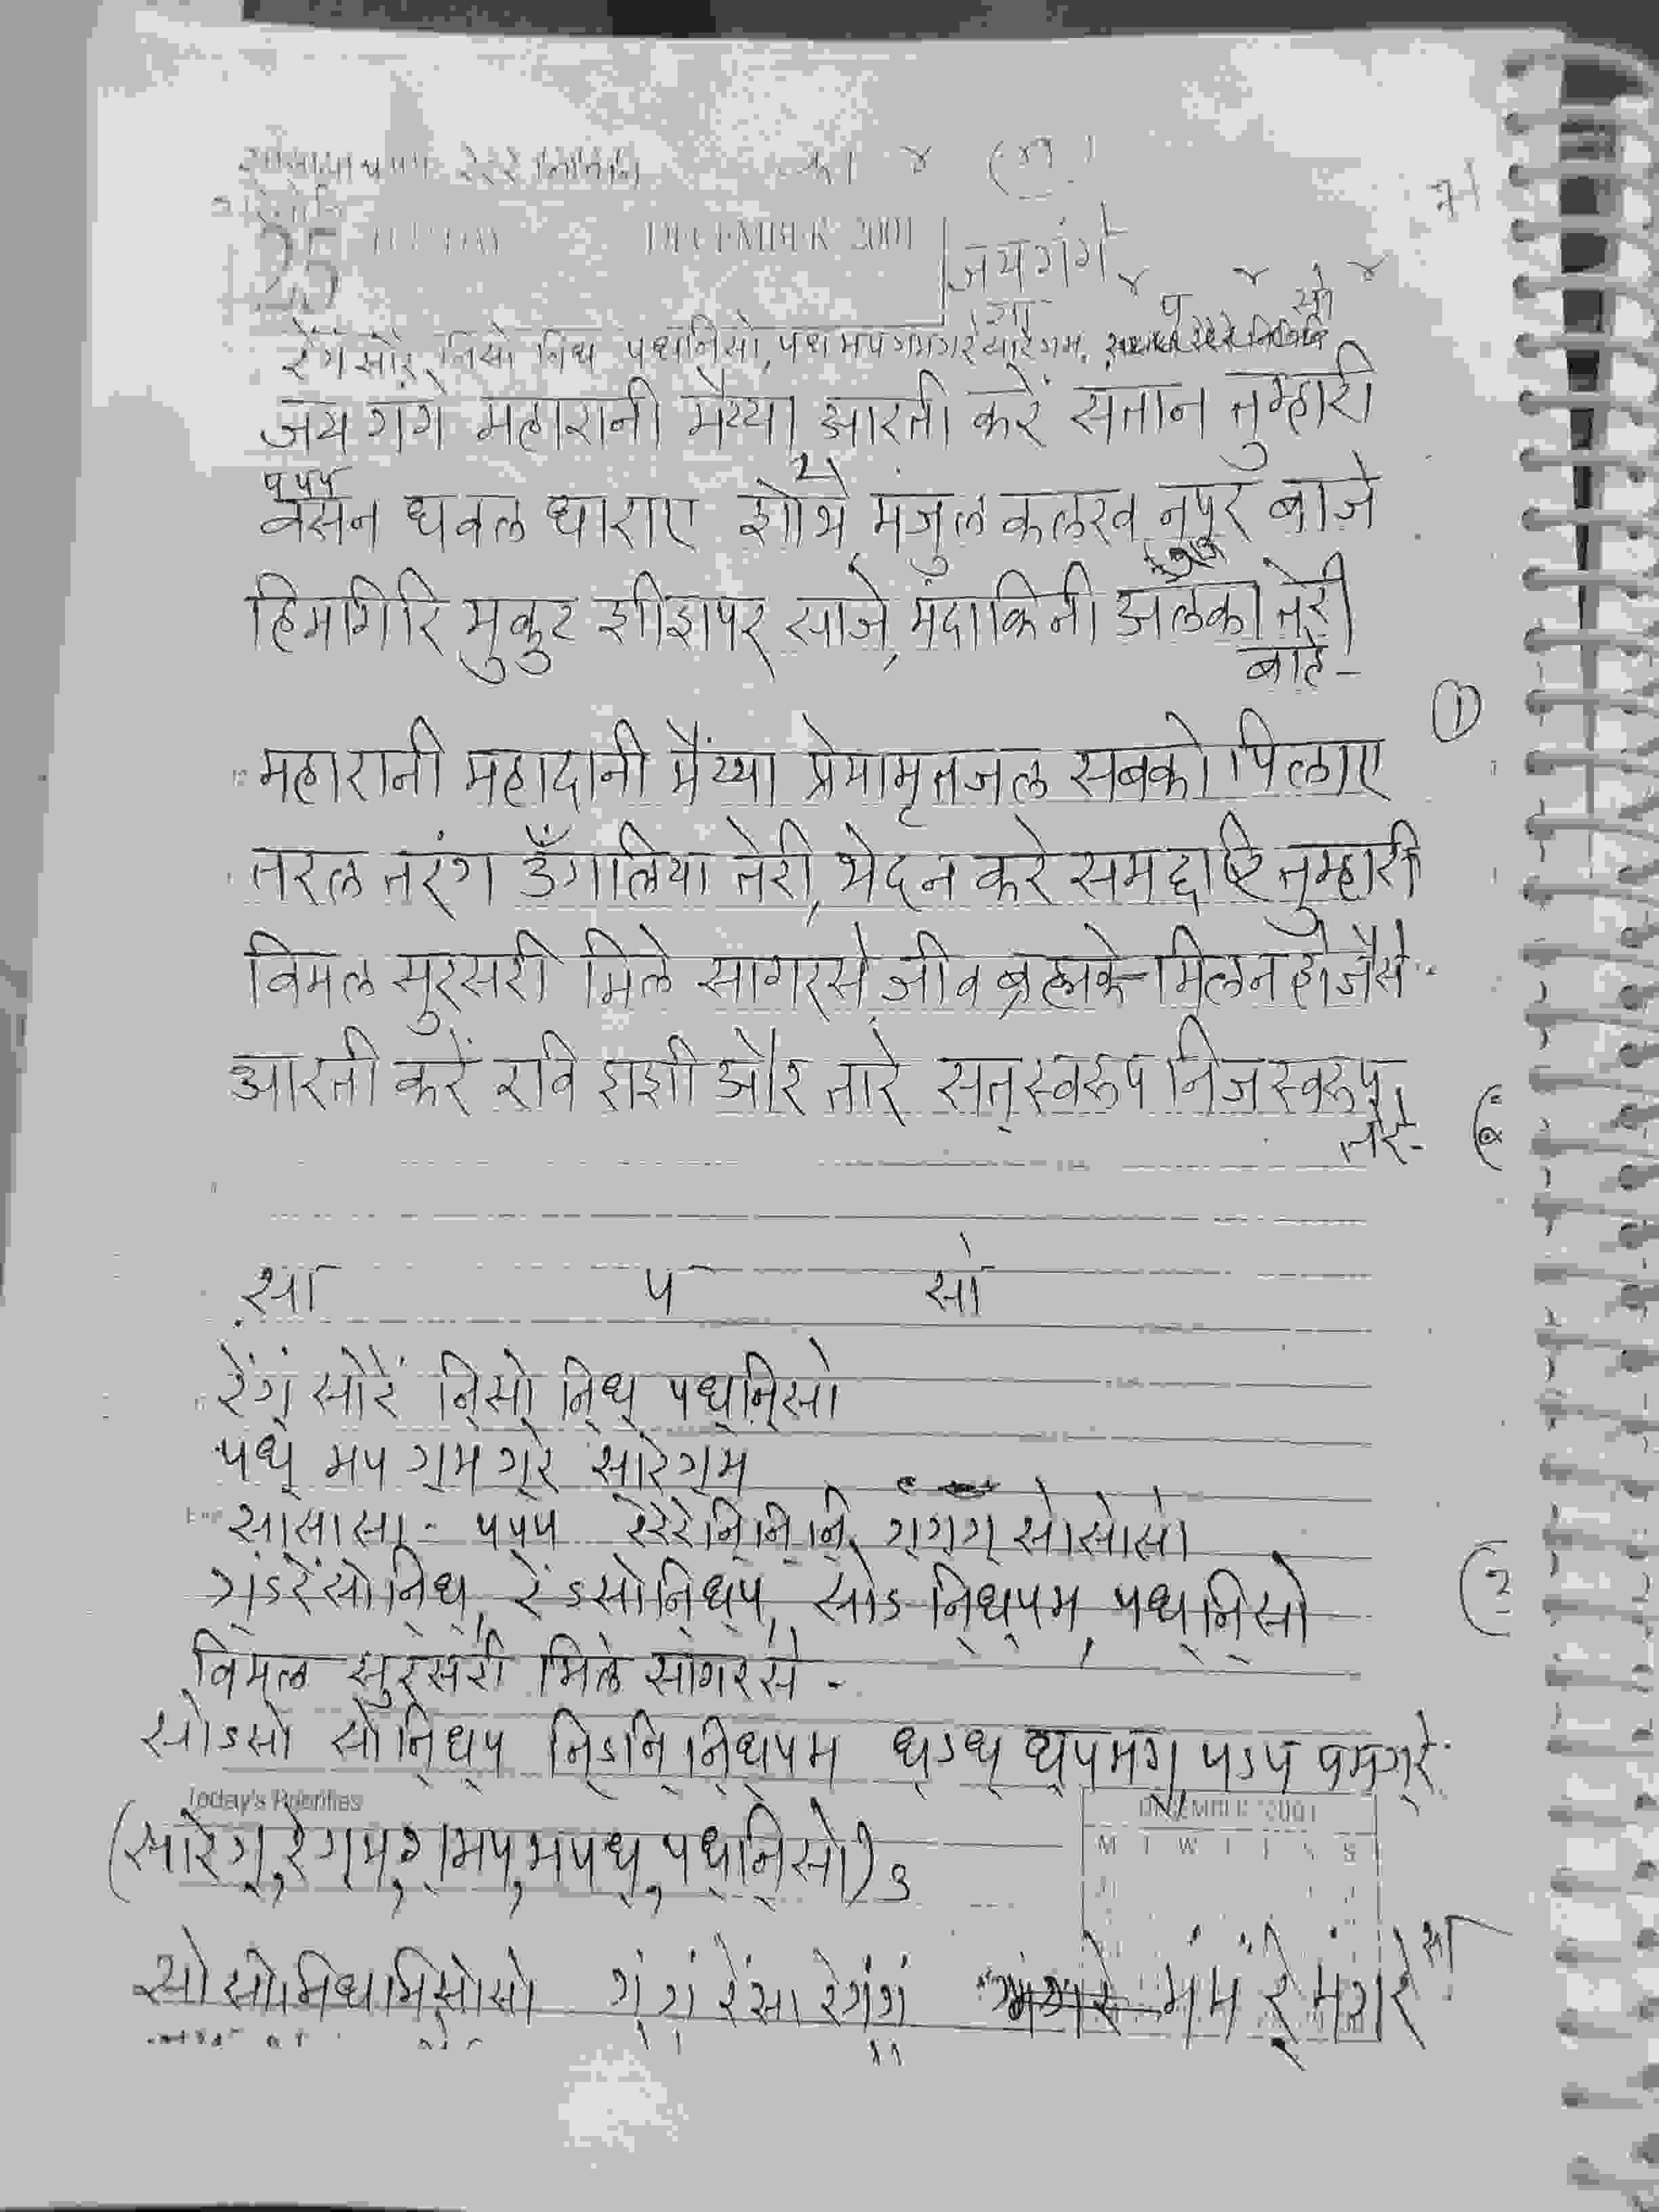 रेरेरे निनिनि
25 TUESDAY DECEMBER 2001
जय गंगे
सा प सां
रेंगं सांरें, निसां निध पधनिसां, पध मप गमगरे सारेगम,
जय गंगे महारानी मैय्या आरती करें संतान तुम्हारी
पपप
वसन धवल धाराए शोभे, मंजुल कलरव नुपूर बाजे
हिमगिरि मुकुट शीशपर साजे, मंदाकिनी अलका तेरी
बाहे-
①
महारानी महादानी मैंय्या प्रेमामृतजल सबको पिलाए
तरल तरंग उँगलिया तेरी, भेद न करे समदृष्टि तुम्हारी
विमल सुरसरी मिले सागरसे, जीव ब्रह्मके मिलन हो जैसे
आरती करें रवि शशी और तारे सत्स्वरूप निजस्वरूप
तेरे-
सा प सां
रेंगं॒ सांरें नि॒सां नि॒ध॒ पध॒नि॒सां
पध॒ मप ग॒म ग॒रे सारेग॒म
सासासा - पपप रेरेरे नि॒नि॒नि॒ ग॒ग॒ग॒ सांसांसां
गं॒ऽरेंसांनि॒ध॒, रेंऽसांनि॒ध॒प, सांऽनि॒ध॒पम, पध॒नि॒सां
विमल सुरसरी मिले सागरसे -
सांऽसां सांनि॒ध॒प नि॒ऽनि॒ नि॒ध॒पम ध॒ऽध॒ ध॒पमग॒ पऽप पमग॒रे
Today's Priorities
DECEMBER 2001
(सारेग॒, रेग॒म, ग॒मप, मपध॒, पध॒नि॒सां) 3
M T W T F S S
सांसांनिधनिसांसां गं॒गं॒ रेंसां रेंगं॒गं॒ मंमं रें मंगंरेंसां